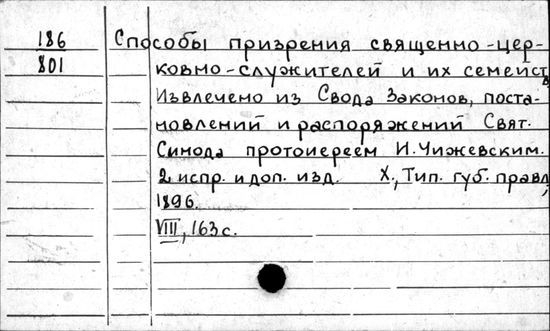 186 Способы призрения священно-цер-
801 ковно-служителей и их семейств
Извлечено из Свода Законов, поста-
новлений и распоряжений Свят.
Синода протоиереем И. Чижевским.
2 испр. и доп. изд. Х., Тип. губ. правл,
1896.
VIII, 163 с.